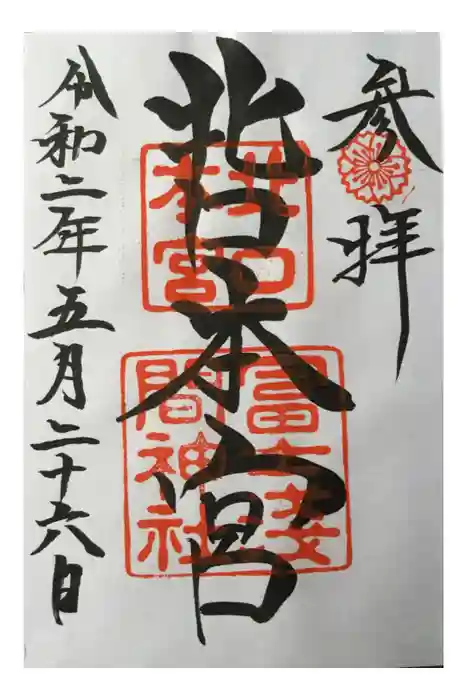 参拝
北口本宮
北口
本宮
冨士浅
間神社
令和二年五月二十六日